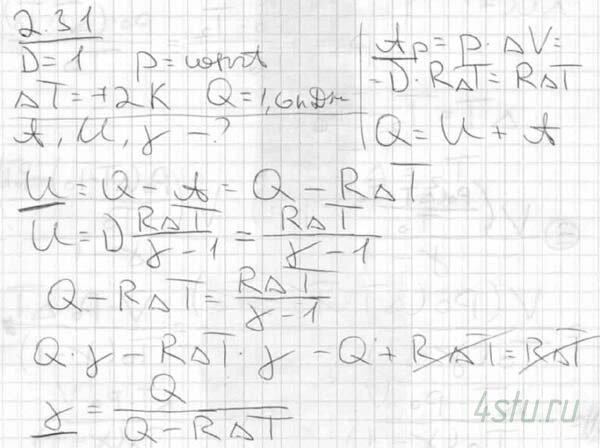 2.31
D = 1 p = const
ΔT = +72K Q = 1,60 кДж
A, U, γ - ?
Ap = p · ΔV =
= D · RΔT = RΔT
Q = U + A
U = Q - A = Q - RΔT
U = D RΔT / (γ - 1) = RΔT / (γ - 1)
Q - RΔT = RΔT / (γ - 1)
Q · γ - RΔT · γ - Q + RΔT = RΔT
γ = Q / (Q - RΔT)
4stu.ru